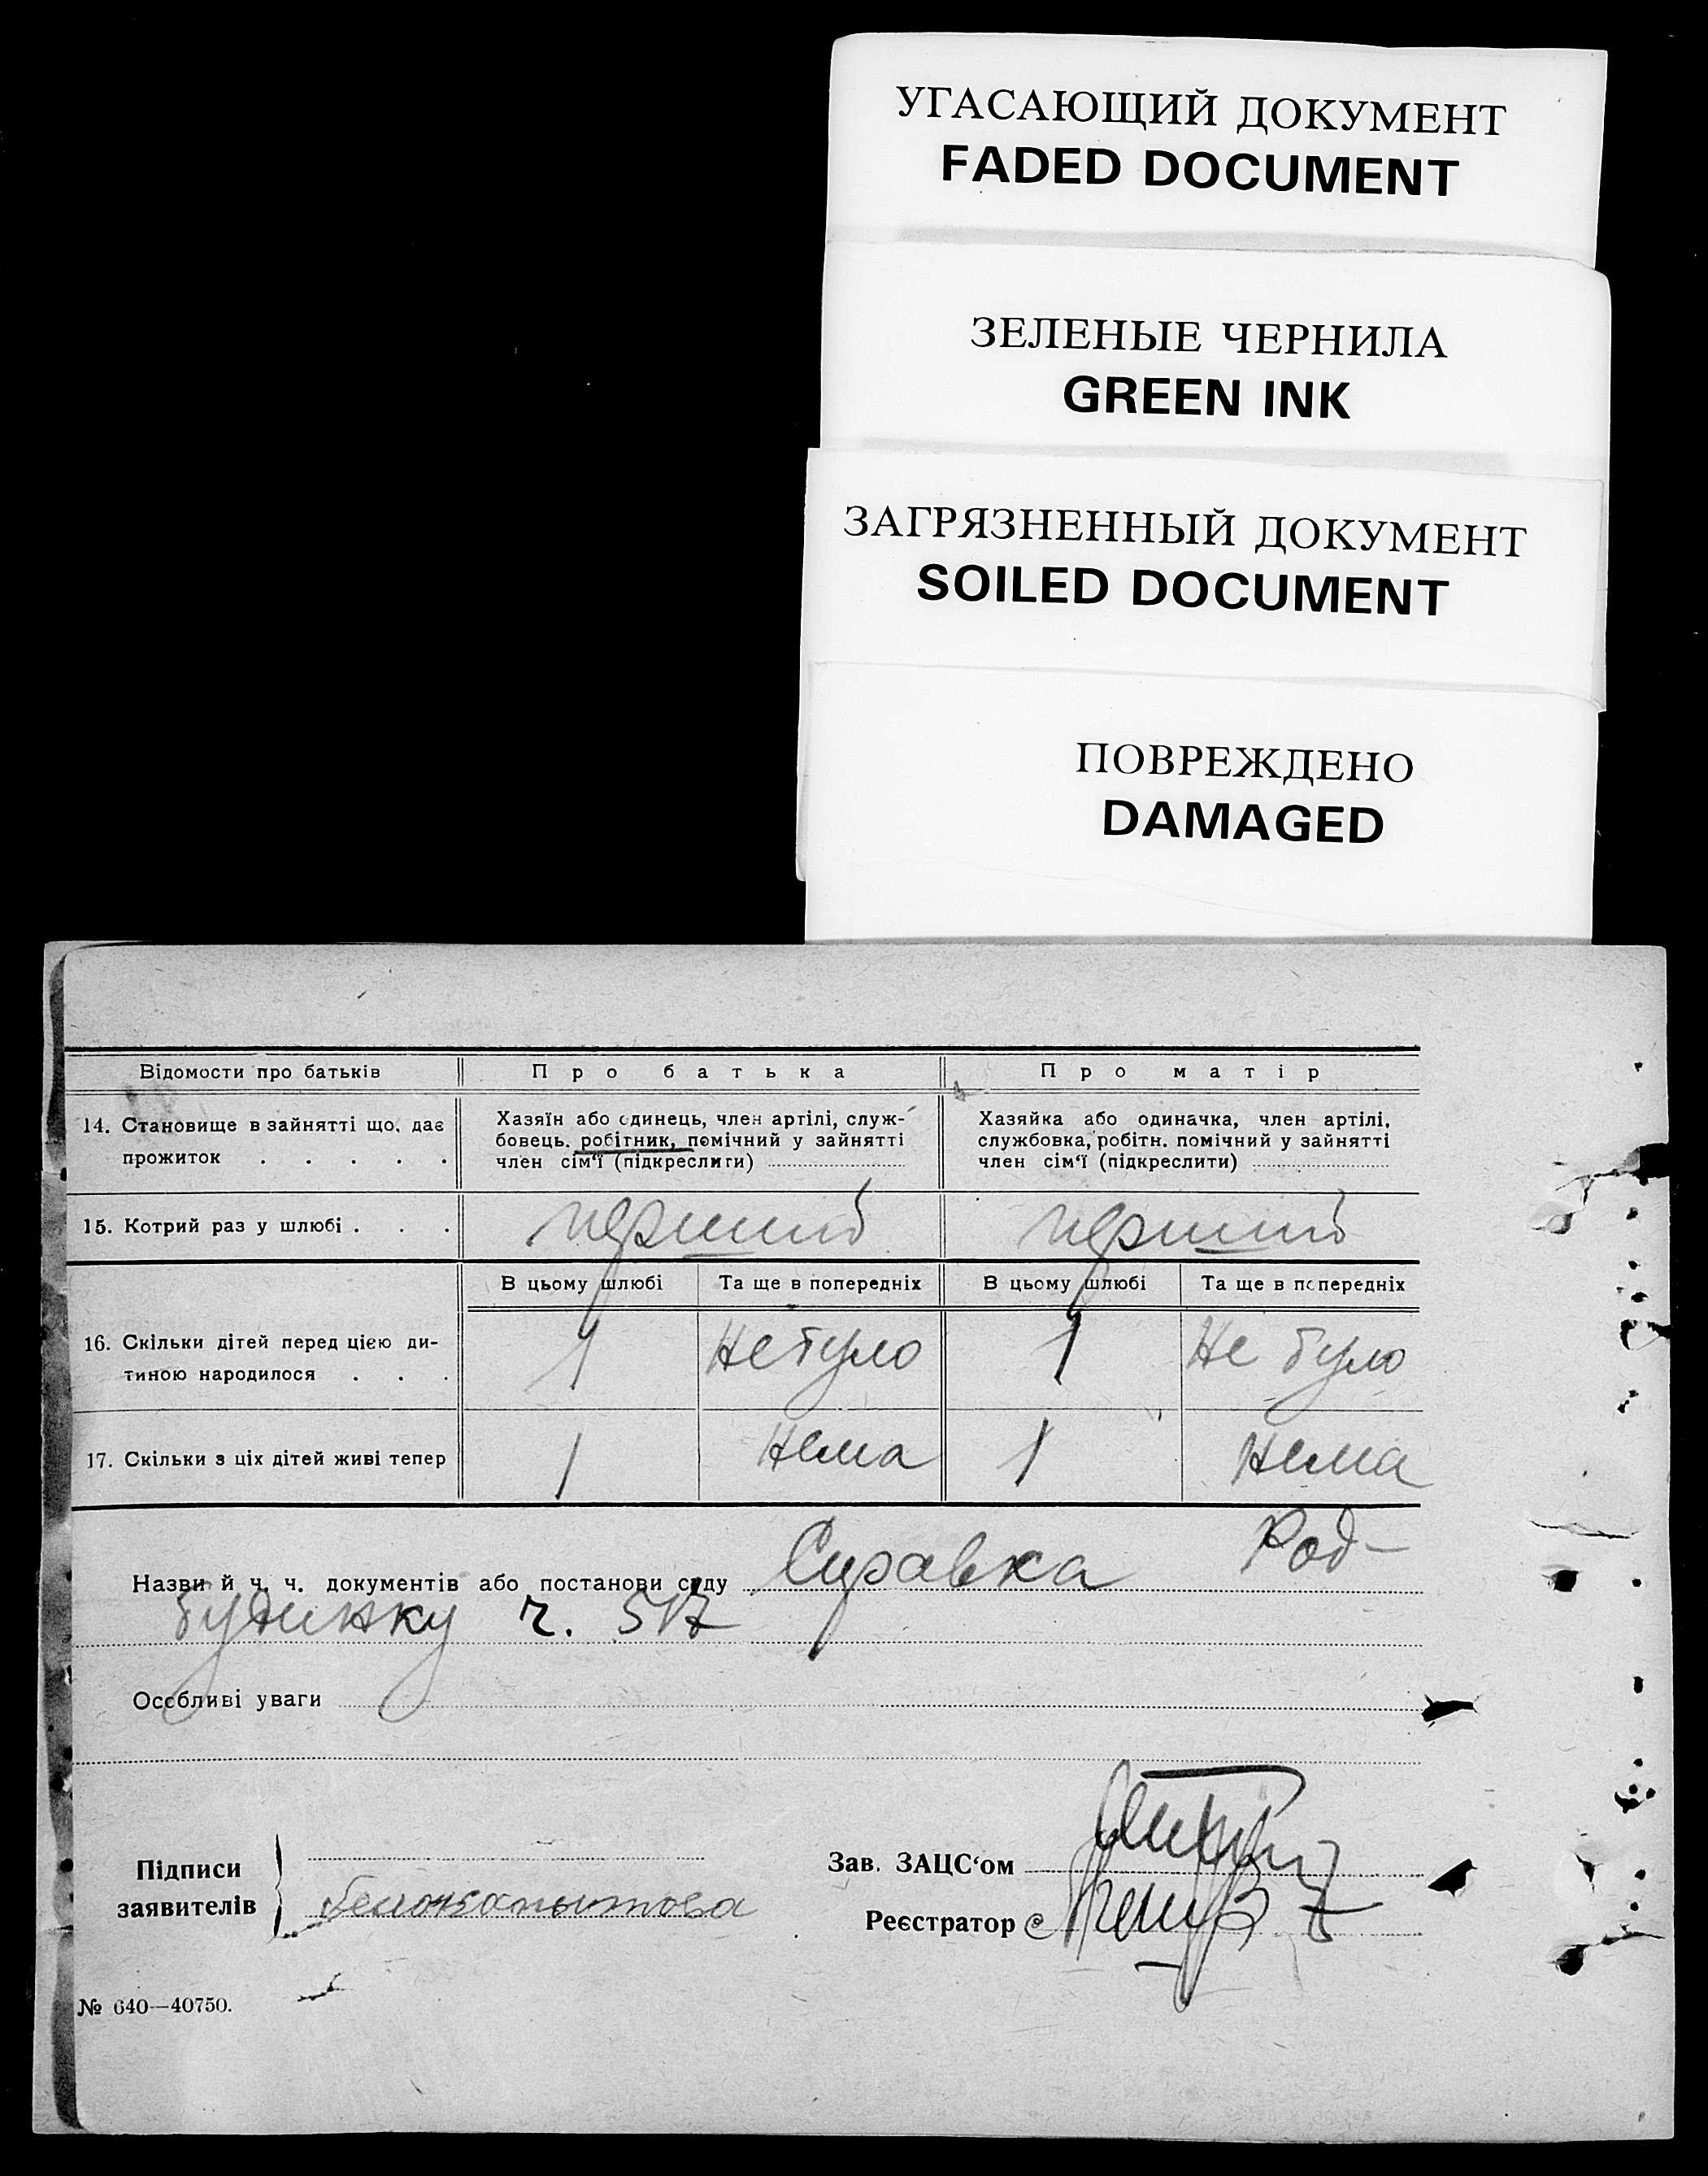 УГАСАЮЩИЙ ДОКУМЕНТ
FADED DOCUMENT
ЗЕЛЕНЫЕ ЧЕРНИЛА
GREEN INK
ЗАГРЯЗНЕННЫЙ ДОКУМЕНТ
SOILED DOCUMENT
ПОВРЕЖДЕНО
DAMAGED
Відомости про батьків Про батька Про матір
14. Становище в зайнятті що, дає
прожиток . . . . .
Хазяїн або одинець, член артілі, служ-
бовець, робітник, помічний у зайнятті
член сім'ї (підкреслити)
Хазяйка або одиначка, член артілі,
службовка, робітн. помічний у зайнятті
член сім'ї (підкреслити)
15. Котрий раз у шлюбі . . . перший перший
В цьому шлюбі Та ще в попередніх В цьому шлюбі Та ще в попередніх
16. Скільки дітей перед цією ди-
тиною народилося . . .
1 Не було 1 Не було
17. Скільки з ціх дітей живі тепер 1 Нема 1 Нема
Назви й ч. ч. документів або постанови суду Справка Род-
будинку ч. 517
Особливі уваги
Підписи
заявителів
Белокопытова
Зав. ЗАЦС'ом
Реєстратор
№ 640—40750.